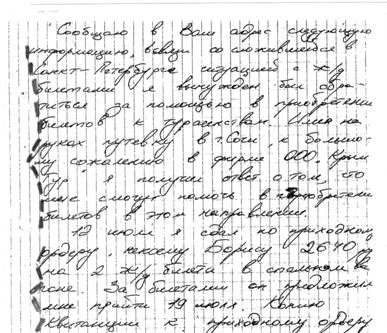 Сообщаю в Ваш адрес следующую
информацию, в связи со сложившейся в
Санкт-Петербурге ситуацией с ж/д
билетами я вынужден был обра-
титься за помощью в приобретении
билетов к турагенствам. Имея на
руках путевку в г. Сочи, к большо-
му сожалению в фирме ООО. Крым
Тур я получил ответ о том, что
мне смогут помочь в приобретении
билетов в этом направлении.
12 июля я сдал по приходному
ордеру, некоему Борису 2640 р
на 2 ж/д билета в спальном ва
гоне. За билетами он предложил
мне прийти 19 июля. Копию
Квитанции к приходному ордеру